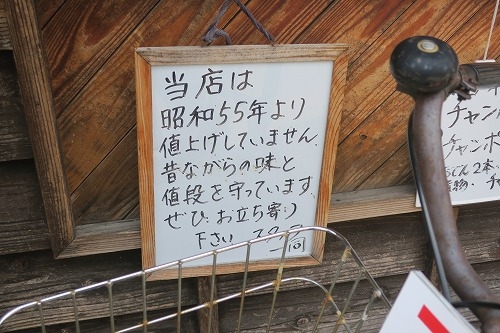 当店は
昭和55年より
値上げしていません。
昔ながらの味と
値段を守っています。
ぜひ。お立ち寄り
下さい スタッフ
一同
チャン
チャンポ
うどん2本